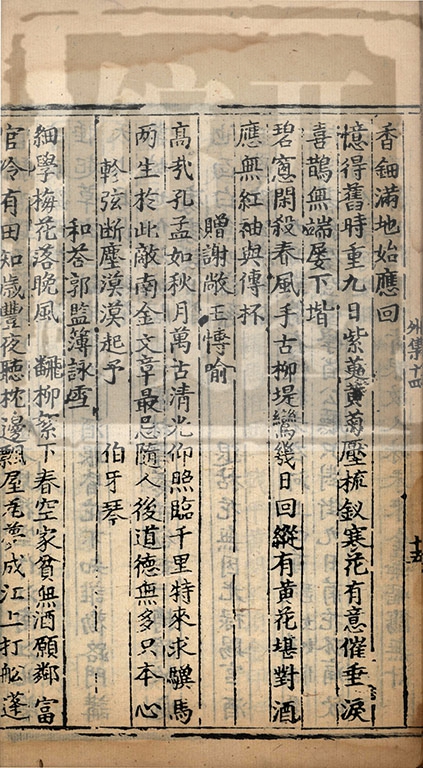 香鈿滿地始應回
憶得舊時重九日紫萸黃菊壓梳釵寒花有意催垂淚
喜鵲無端屡下堦
碧窓閑殺春風手古柳堤鸞幾日回縱有黃花堪對酒
應無紅袖與傳杯
贈謝敞王博喻
髙哉孔孟如秋月萬古清光仰照臨千里特來求驥馬
两生於此敵南金文章最忌隨人後道德無多只本心
軫弦断塵漠漠起予 伯牙琴
和荅郭監簿詠雪
細學梅花落晚風 翻柳絮下春空家貧無酒願鄰富
官冷有田知歲豐夜聽枕邊飄屋瓦夢成江上打舩蓬
外集十四